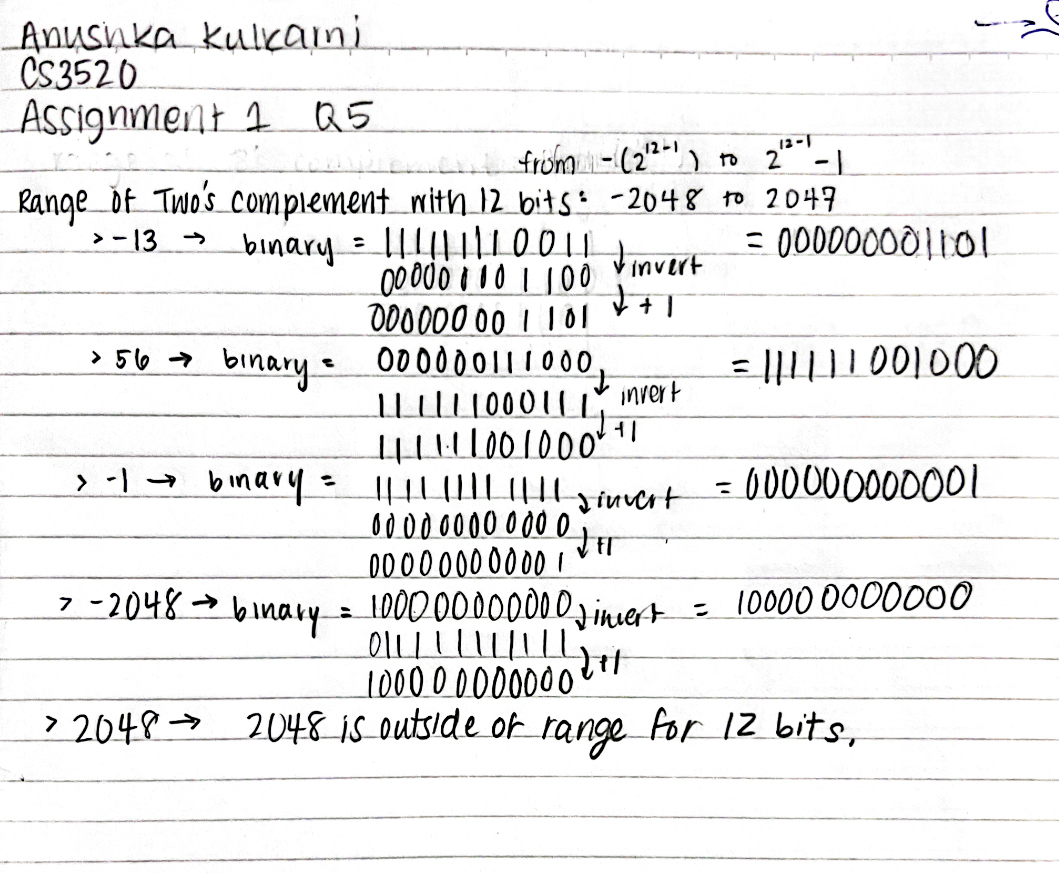 Anushka Kulkarni
CS3520
Assignment 1 Q5
from -(2^12-1) to 2^12-1 - 1
Range of Two's complement with 12 bits: -2048 to 2047
> -13 → binary = 111111110011 ↓ invert = 000000001101
000000001100 ↓ +1
000000001101
> 56 → binary = 000000111000 ↓ invert = 111111001000
111111000111 ↓ +1
111111001000
> -1 → binary = 111111111111 ↓ invert = 000000000001
000000000000 ↓ +1
000000000001
> -2048 → binary = 100000000000 ↓ invert = 100000000000
011111111111 ↓ +1
100000000000
> 2048 → 2048 is outside of range for 12 bits.